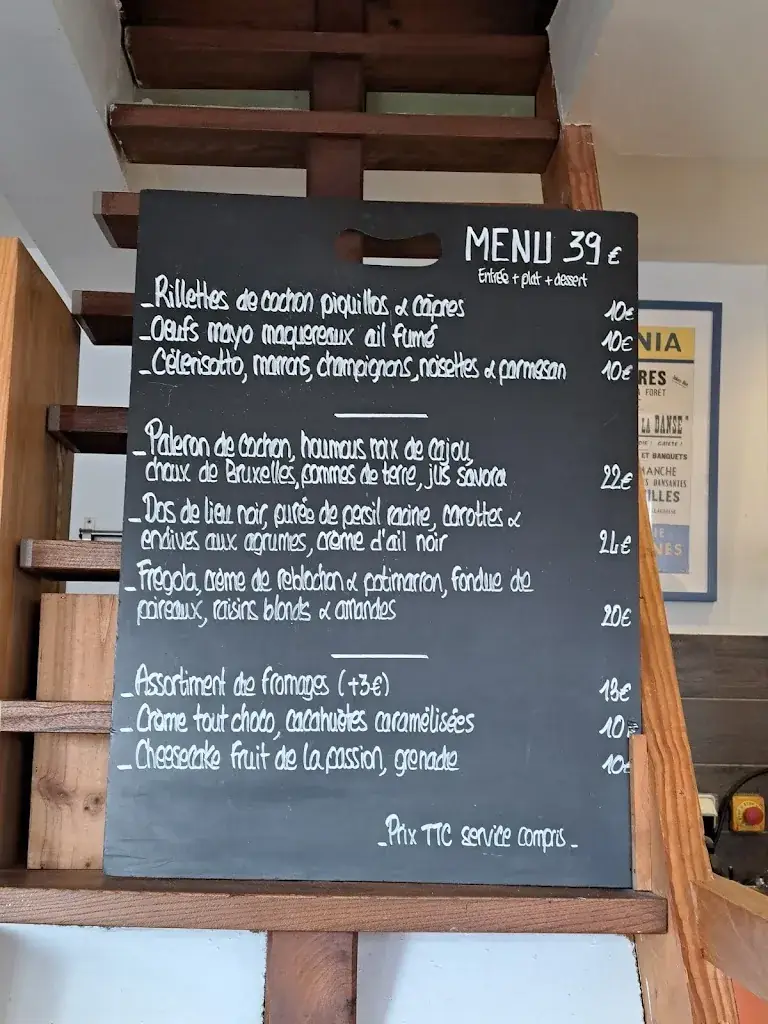 MENU 39€
Entrée + plat + dessert
_Rillettes de cochon piquillos & câpres 10€
_Oeufs mayo maquereaux ail fumé 10€
_Célerisotto, marrons, champignons, noisettes & parmesan 10€
_Paleron de cochon, houmous noix de cajou,
choux de Bruxelles, pommes de terre, jus savora 22€
_Dos de lieu noir, purée de persil racine, carottes &
endives aux agrumes, crème d'ail noir 24€
_Fregola, crème de reblochon & potimarron, fondue de
poireaux, raisins blonds & amandes 20€
_Assortiment de fromages (+3€) 13€
_Crème tout choco, cacahuètes caramélisées 10
_Cheesecake fruit de la passion, grenade 10€
_Prix TTC service compris_
NIA
RES
FORÊT
LA DANSE"
ET BANQUETS
MANCHE
DANSANTES
ILLES
NES